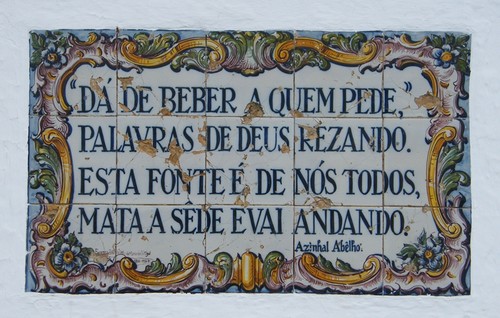 “DÁ DE BEBER A QUEM PEDE,”
PALAVRAS DE DEUS REZANDO.
ESTA FONTE É DE NÓS TODOS,
MATA A SEDE E VAI ANDANDO.
Azinhal Abêlho.